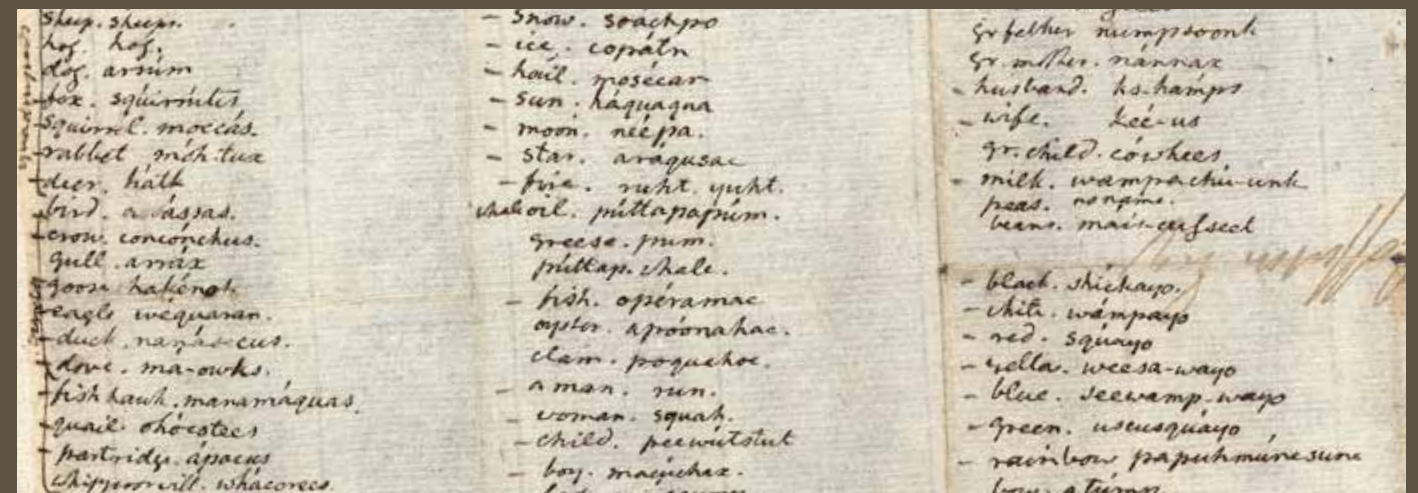 sheep. sheeps.
hog. hog.
dog. arrúm
fox. squírrutes
squirrel. moccás.
rabbet móh.tux
deer. hátk
bird. a sássas.
crow. conconchus.
gull. arráx
goose hakénok
eagle wéquaran.
duck. nanás-ecus.
dove. ma-owks.
fish hawk. manamáquas
quail. ohócotees
partridge. ápacus
whipperwill. whácorees.
snow. soáchpo
ice. copátn
hail. mosécar
sun. háquaqua
moon. neépa.
star. aráqusac
fire. ruht. yuht.
whale oil. púttapapúm.
greese. pum.
púttap. whale.
fish. opéramac
oyster. apóonahac.
clam. poquahoc.
a man. run.
woman. squah.
child. peewútstut
boy. macúchax.
gr father numpsoonk
gr. mother. nánnax
husband. ks-hamps
wife. kee-us
gr. child. cówhees
milk. wampachiu-unk
peas. no name.
beans. mais-cusseet
black. shickayo.
white. wámpayo
red. squáyo
yella. weesa-wayo
blue. seewamp-wayo
green. uscusquáyo
rainbow papuhmúncsunc